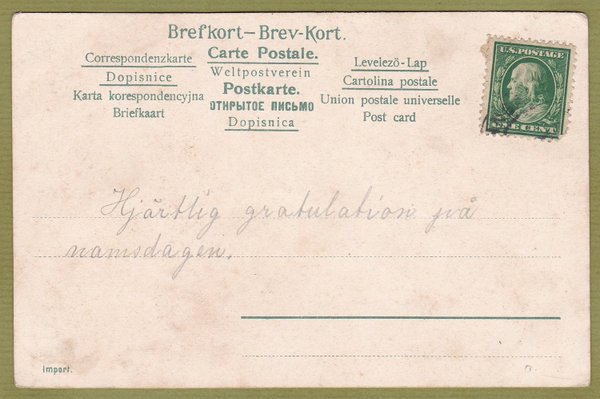 Brefkort–Brev-Kort.
Correspondenzkarte
Carte Postale.
Levelezö-Lap
Dopisnice
Weltpostverein
Cartolina postale
Karta korespondencyjna
Postkarte.
Union postale universelle
Briefkaart
ОТКРЫТОЕ ПИСЬМО
Post card
Dopisnica
U.S. POSTAGE
ONE CENT
Hjärtlig gratulation på
namsdagen.
import.